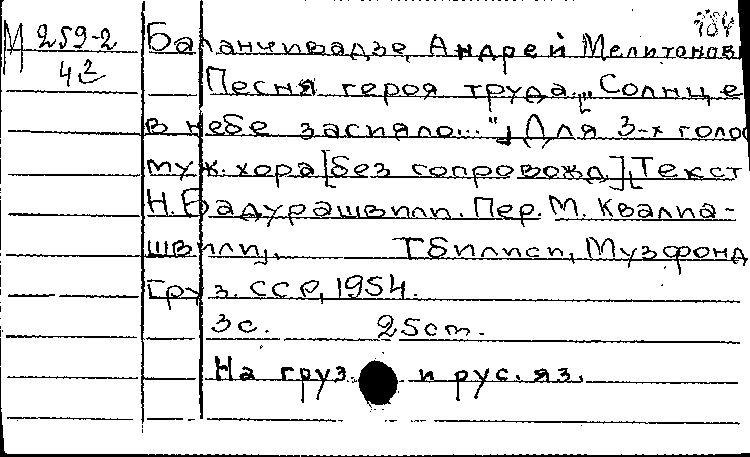 М 259-2
Баланчивадзе, Андрей Мелитонов
Песня героя труда „Солнце
в небе засияло..." Для 3-х голос
муж. хора [без сопровожд.] Текст
Н. Бадурашвили. Пер. М. Квалиа-
швили, Тбилиси, Музфонд
Груз. ССР, 1954.
3с. 25см.
На груз. и рус. яз.